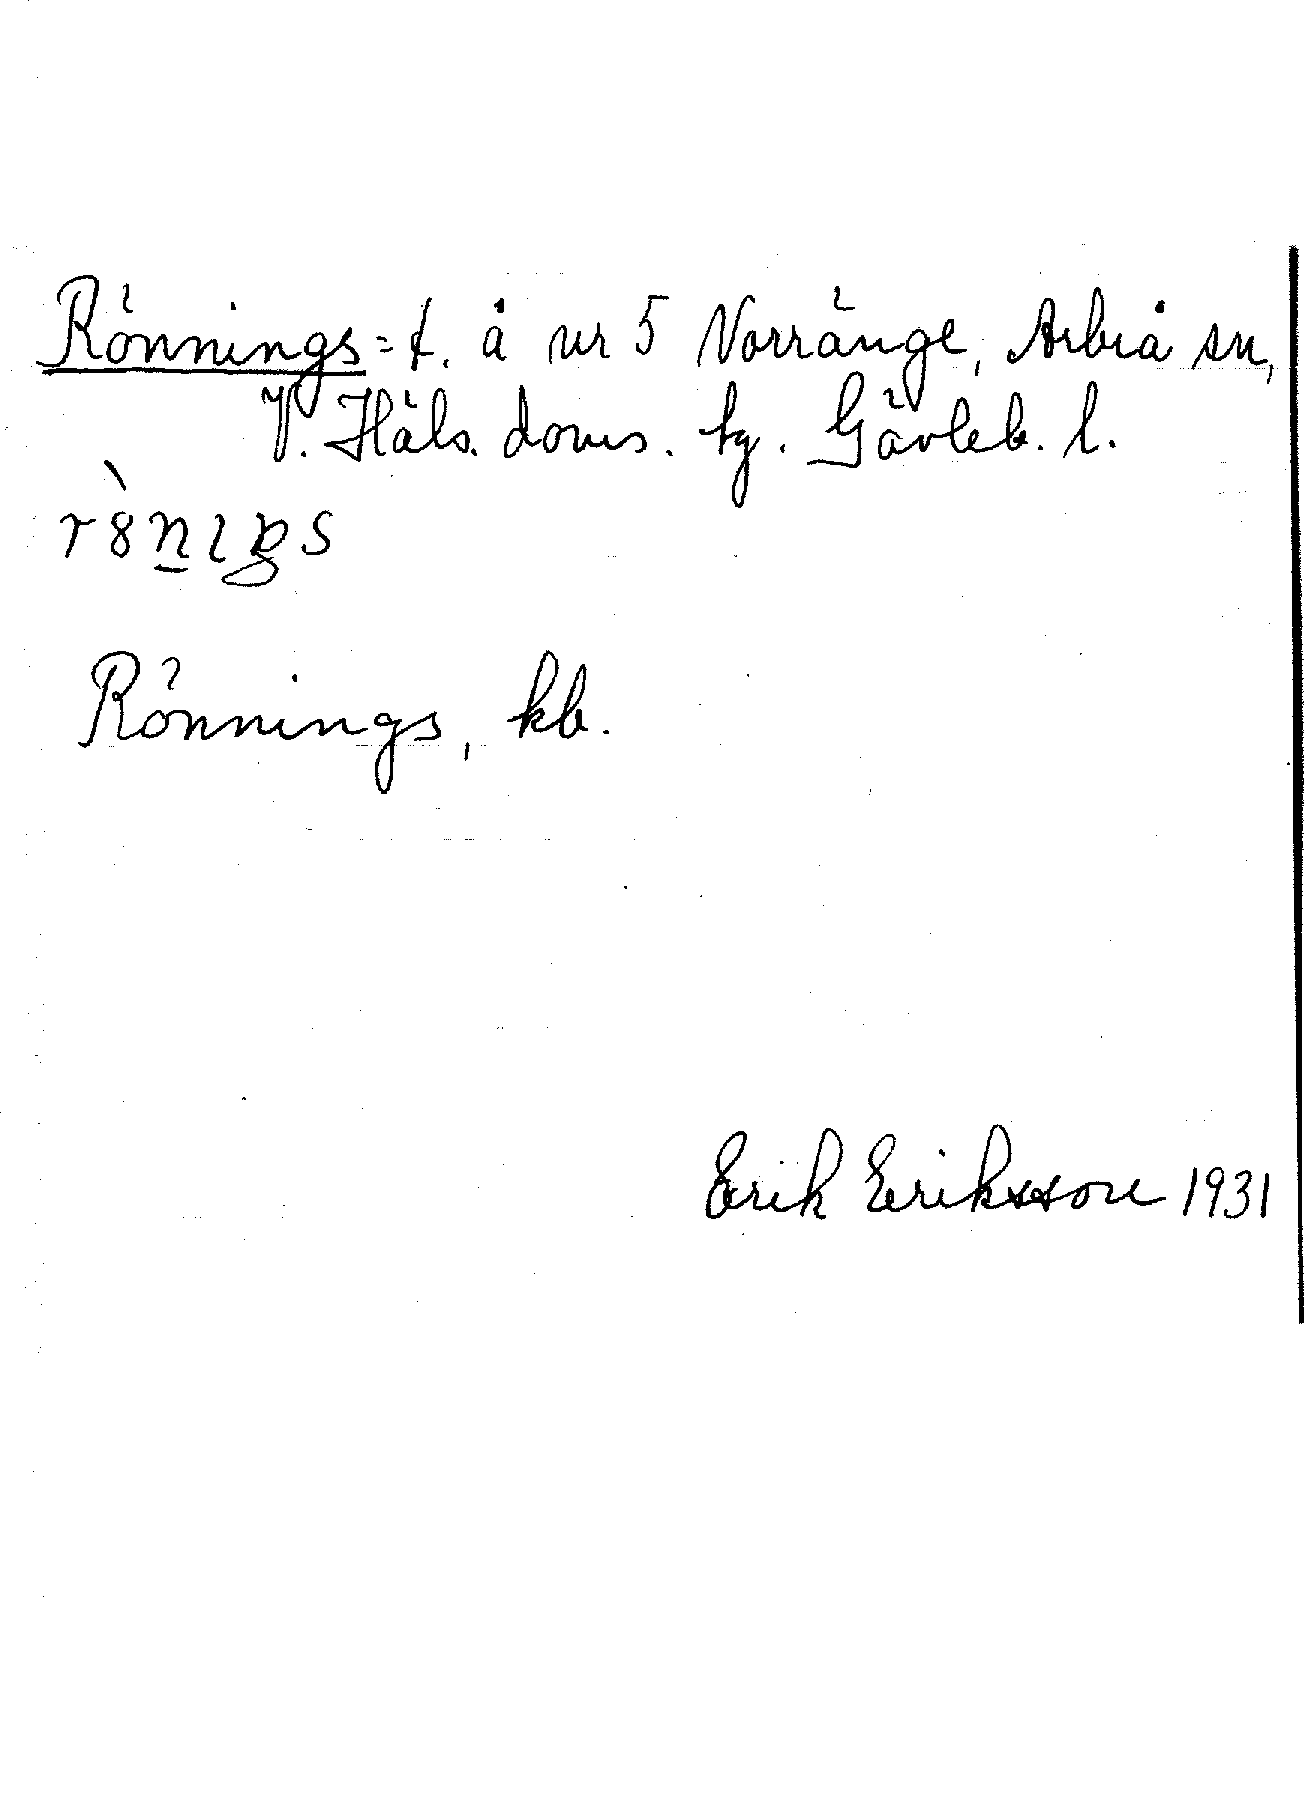 Rönnings = t. å nr 5 Norränge, Arbrå sn,
V. Häls. doms. tg. Gävleb. l.
Rönnings, kb.
Erik Eriksson 1931